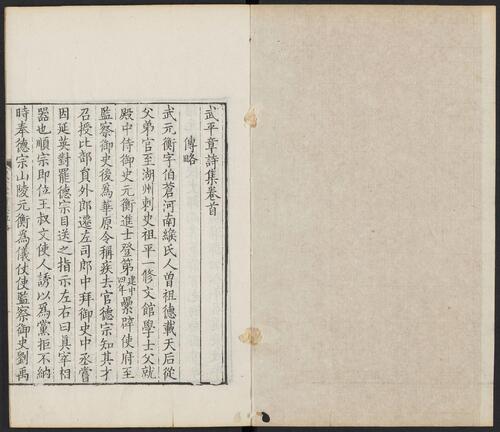 武平章詩集卷首
傳略
武元衡字伯蒼河南緱氏人曾祖德載天后從
父弟官至湖州刺史祖平一修文館學士父就
殿中侍御史元衡進士登第建中四年累辟使府至
監察御史後為華原令稱疾去官德宗知其才
召授比部員外郎遷左司郎中拜御史中丞嘗
因延英對罷德宗目送之指示左右曰真宰相
器也順宗即位王叔文使人誘以為黨拒不納
時奉德宗山陵元衡為儀仗使監察御史劉禹